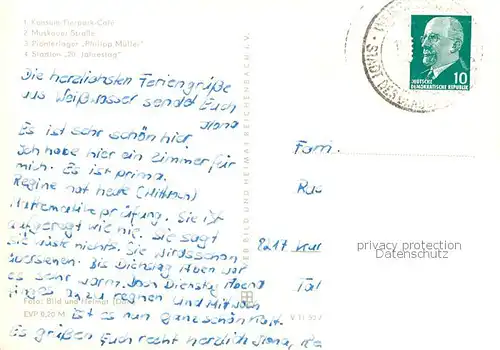 1 Konsum Tierpark-Café
2 Muskauer Straße
3 Pionierlager „Philipp Müller“
4 Stadion „20. Jahrestag“
Die herzlichsten Feriengrüße
aus Weißwasser sendet Euch
Ilona
Es ist sehr schön hier.
Ich habe hier ein Zimmer für
mich. Es ist prima.
Regine hat heute (Mittwoch)
Mathematikprüfung. Sie ist
aufgeregt wie nie. Sie sagt
sie wüste nichts. Sie wirds schon
Bis Dienstag Aben war
es sehr warm. Dienstag Abend
fing es an zu regnen und Mittwoch
ist es nun ganz schön kalt.
Es grüßen Euch recht herzlich Ilona,
Foto: Bild und Heimat
EVP 0,20 M
BILD UND HEIMAT REICHENBACH I. V.
V 11 52
STADT DES
10
DEUTSCHE
DEMOKRATISCHE REPUBLIK
Fam.
8217
Tal
privacy protection
Datenschutz